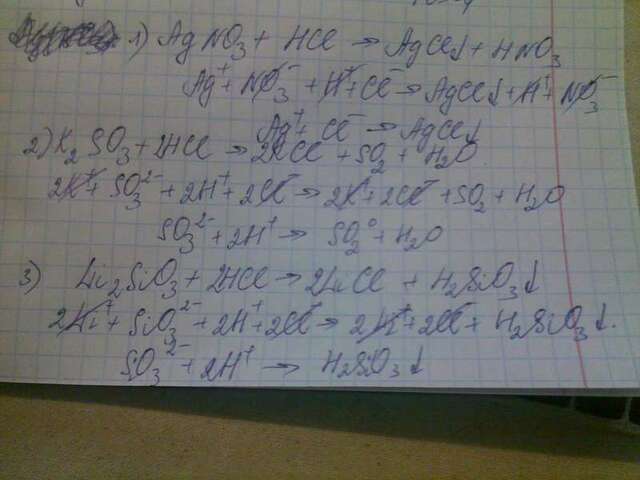 1) AgNO₃ + HCl → AgCl↓ + HNO₃
Ag⁺ + NO₃⁻ + H⁺ + Cl⁻ → AgCl↓ + H⁺ + NO₃⁻
Ag⁺ + Cl⁻ → AgCl↓
2) K₂SO₃ + 2HCl → 2KCl + SO₂ + H₂O
2K⁺ + SO₃²⁻ + 2H⁺ + 2Cl⁻ → 2K⁺ + 2Cl⁻ + SO₂ + H₂O
SO₃²⁻ + 2H⁺ → SO₂⁰ + H₂O
3) Li₂SiO₃ + 2HCl → 2LiCl + H₂SiO₃↓
2Li⁺ + SiO₃²⁻ + 2H⁺ + 2Cl⁻ → 2Li⁺ + 2Cl⁻ + H₂SiO₃↓.
SiO₃²⁻ + 2H⁺ → H₂SiO₃↓